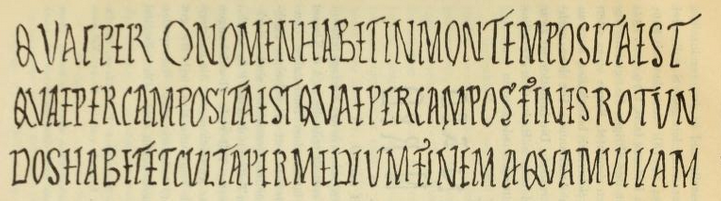 QVAEPER ONOMENHABETINMONTEMPOSITAEST
QVAEPERCAMPOSITAESTQVAEPERCAMPOSFINESROTVN
DOSHABETETCVLTAPERMEDIVMFINEM AQVAMVIVAM